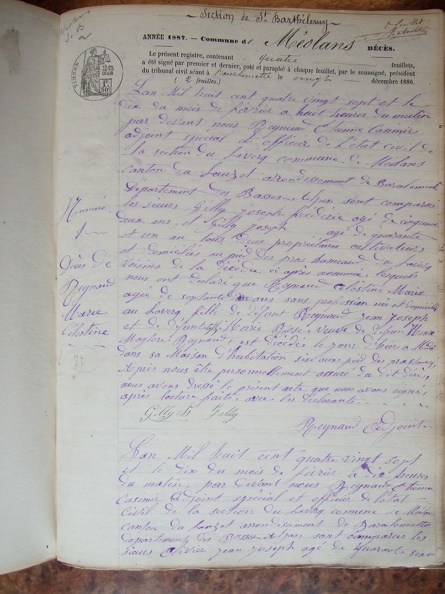 Section de St Barthélemy
ANNÉE 1887. — Commune de Méolans DÉCÈS.
Le présent registre, contenant quatre feuillets,
a été signé par premier et dernier, coté et paraphé à chaque feuillet, par le soussigné, président
du tribunal civil séant à Barcelonnette le décembre 1886.
(2 feuilles)
L'an Mil huit cent quatre vingt sept et le
dix du mois de février a huit heures du matin
par devant nous Reynaud Etienne Casimir
adjoint spécial et officier de l'état civil de
la section du Laverq commune de Méolans
canton du Lauzet arrondissement de Barcelonnette
Département des Basses Alpes sont comparus
les sieurs Gilly Joseph Frédéric agé de cinquante
ans et Gilly Joseph agé de quarante
et un ans tous deux propriétaires cultivateurs
et domiciliés au hameau du Laverq
voisins de la décédée ci après nommée, lesquels
nous ont déclaré que Reynaud Célestine Marie
agée de septante ans sans profession née et domiciliée
au Laverq fille de défunt Reynaud Jean Joseph
et de défunte Marie Rose Veuve de
Reynaud, est décédée le jour d'hier a
dans sa Maison d'habitation sise aux
Après nous être personnellement assuré du décès,
nous avons dressé le présent acte que nous avons signé
après lecture faite avec les déclarants.
Gilly Gilly
Reynaud Adjoint
Numéro
1
Décès de
Reynaud
Marie
Célestine
L'an Mil huit cent quatre vingt sept
et le dix du mois de février a dix heures
du matin, par devant nous Reynaud Etienne
Casimir adjoint spécial et officier de l'état
civil de la section du Laverq commune de Méolans
canton du Lauzet arrondissement de Barcelonnette
département des Basses Alpes sont comparus les
sieurs Jean Joseph agé de quarante